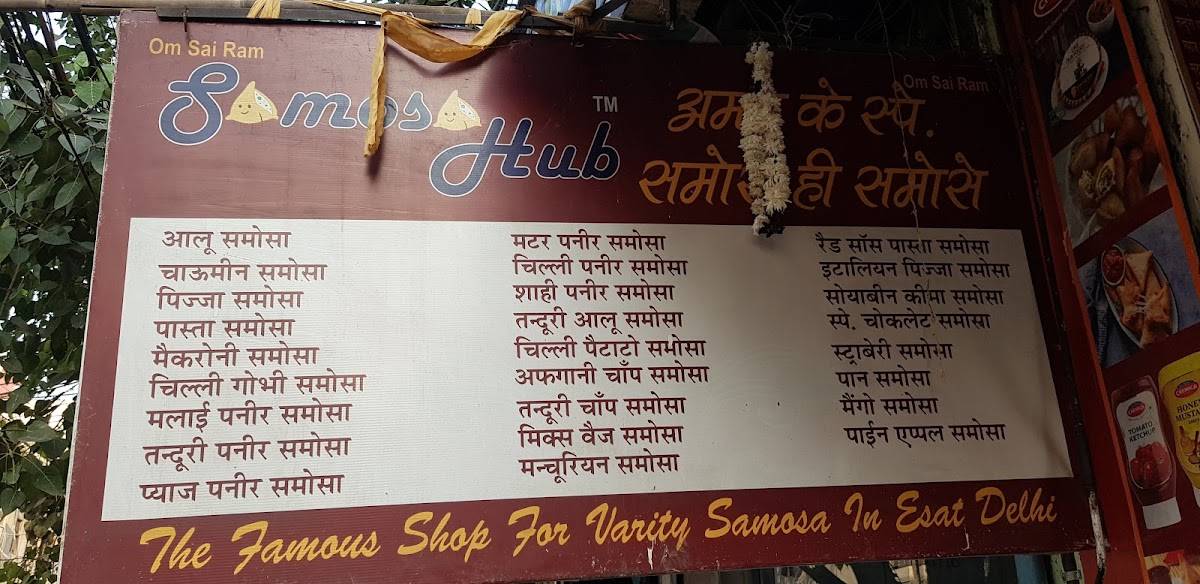 Om Sai Ram
Om Sai Ram
Samosa Hub TM
के स्पे.
ही समोसे
आलू समोसा
चाऊमीन समोसा
पिज्जा समोसा
पास्ता समोसा
मैकरोनी समोसा
चिल्ली गोभी समोसा
मलाई पनीर समोसा
तन्दूरी पनीर समोसा
प्याज पनीर समोसा
मटर पनीर समोसा
चिल्ली पनीर समोसा
शाही पनीर समोसा
तन्दूरी आलू समोसा
चिल्ली पैटाटो समोसा
अफगानी चाँप समोसा
तन्दूरी चाँप समोसा
मिक्स वैज समोसा
मन्चूरियन समोसा
रैड सॉस पास्ता समोसा
इटालियन पिज्जा समोसा
सोयाबीन कीमा समोसा
स्पे. चोकलेट समोसा
स्ट्राबेरी समोसा
पान समोसा
मैंगो समोसा
पाईन एप्पल समोसा
The Famous Shop For Varity Samosa In Esat Delhi
TOMATO
KETCHUP
HONEY